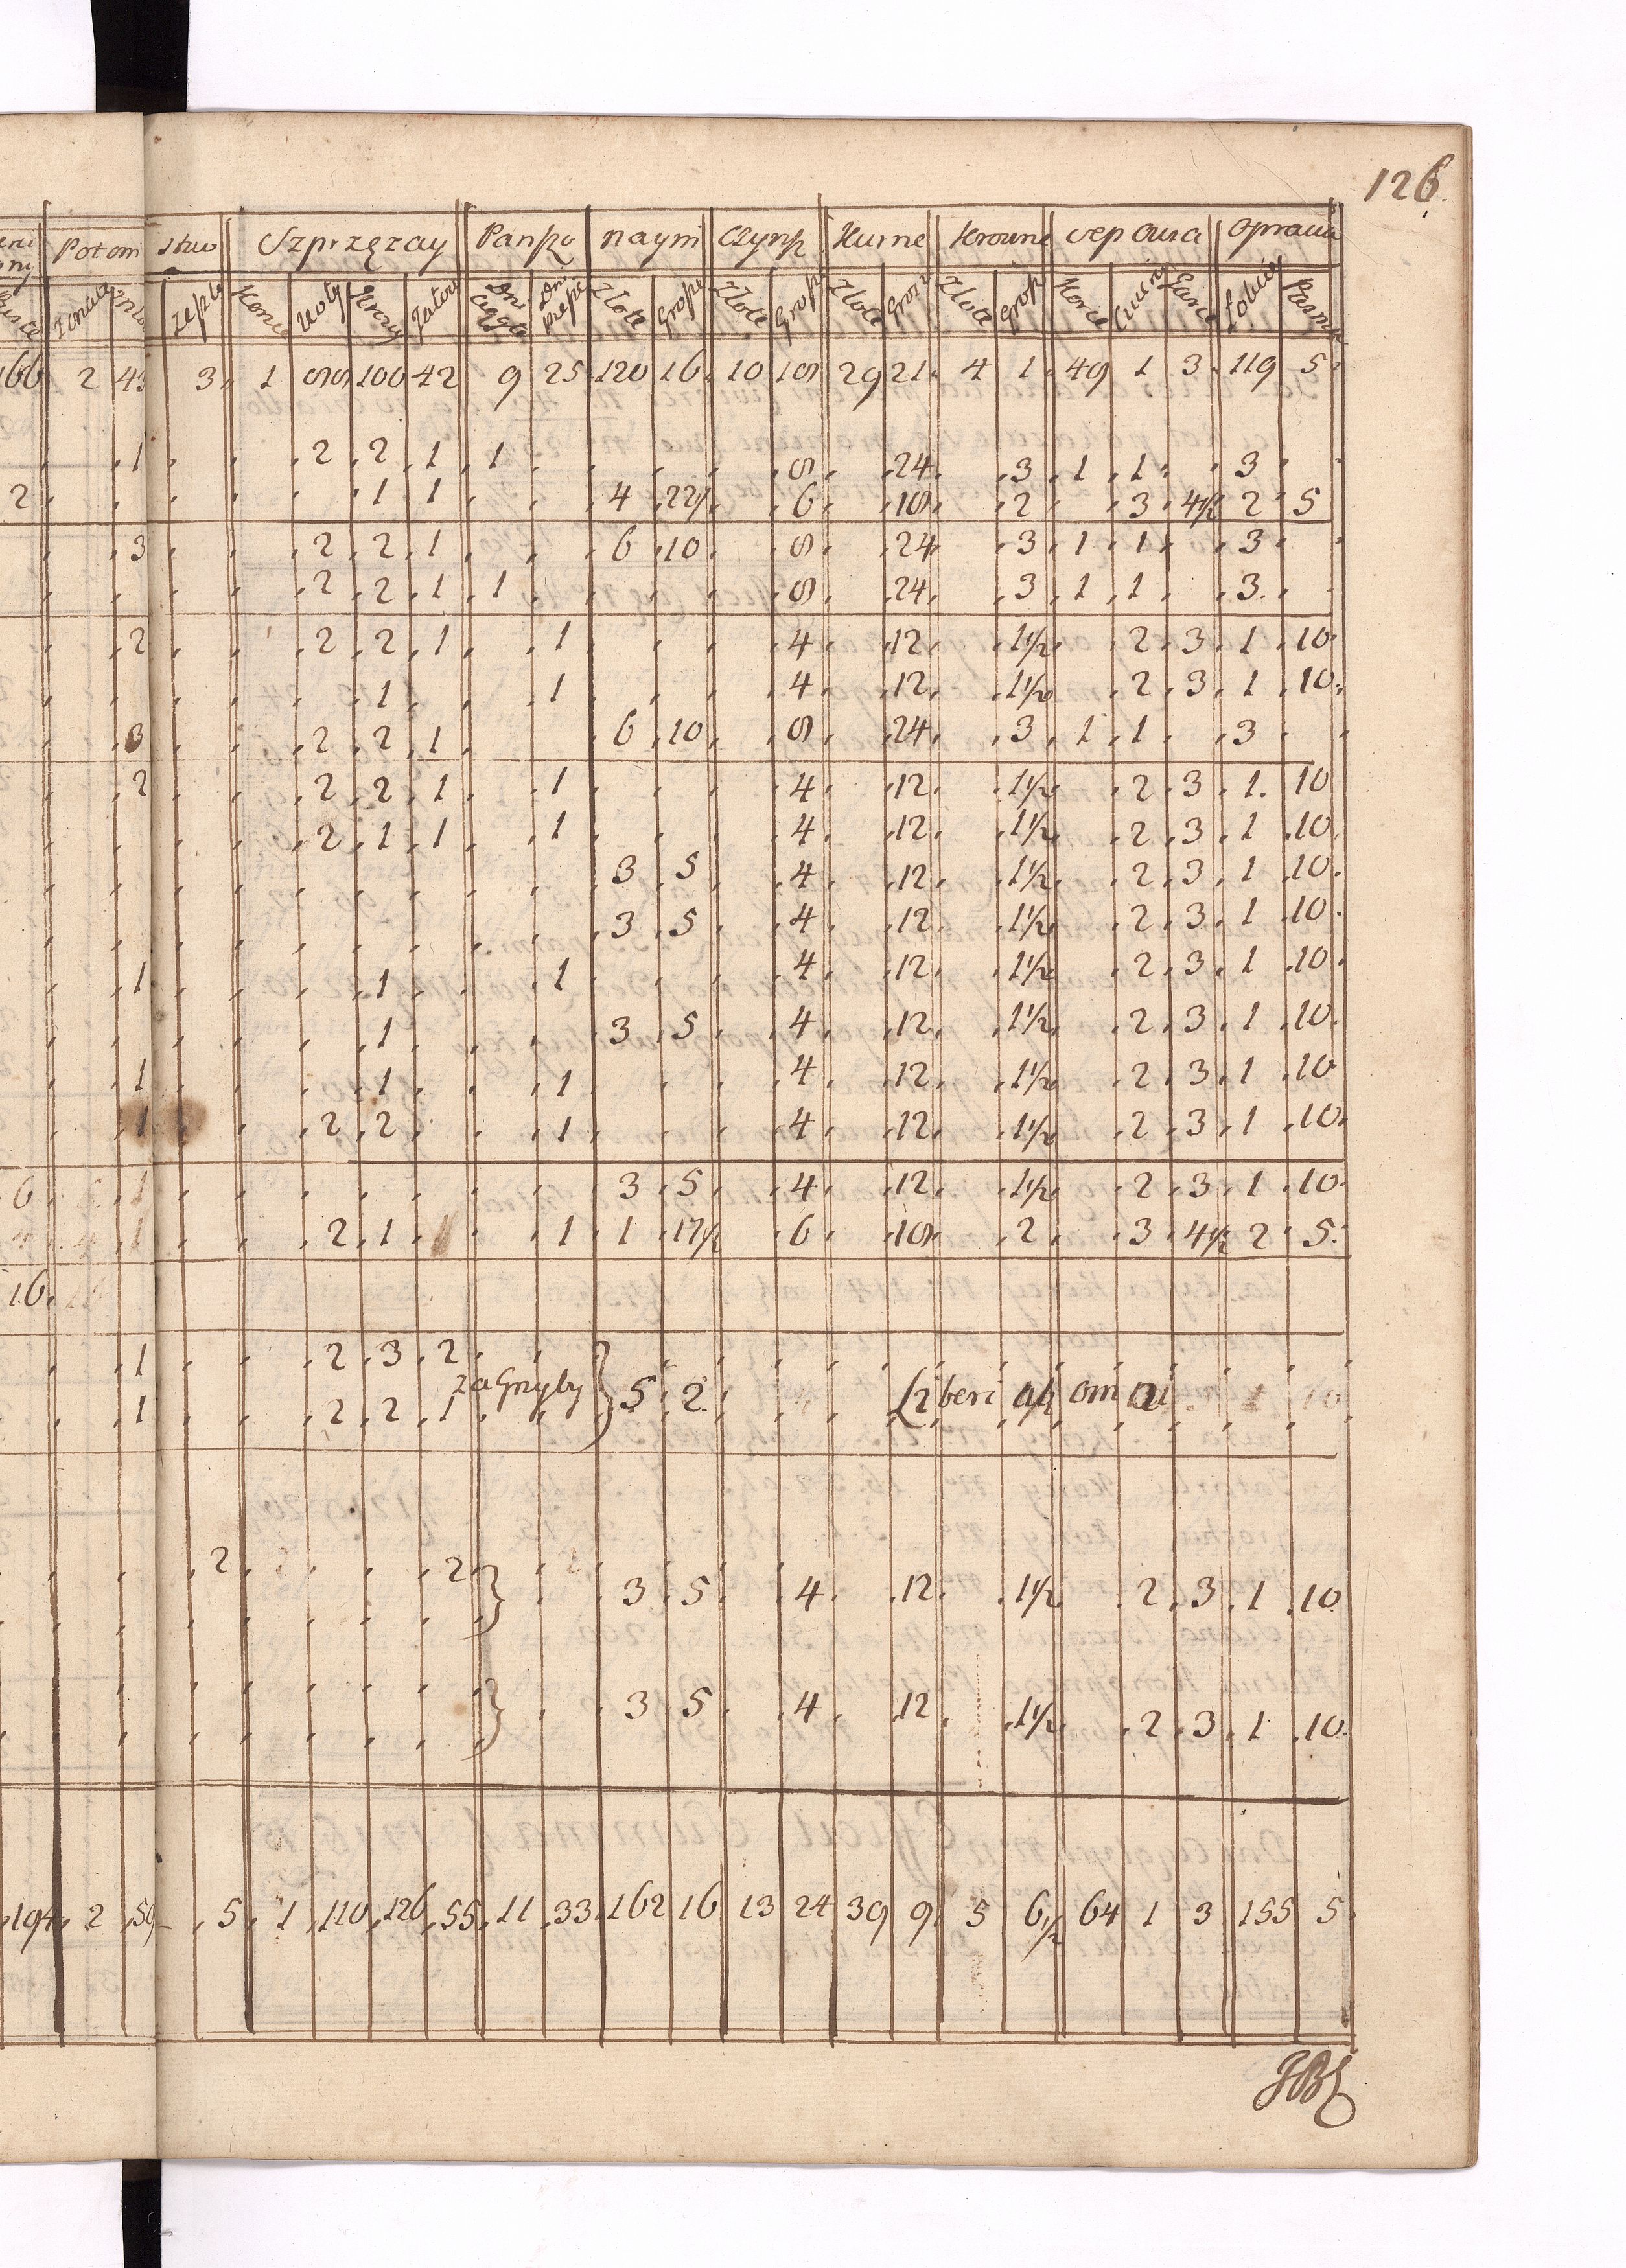 126.
Potom stwo Szprzężay Pańsz naym Czynsz Kurne Krowne Sep Owsa Oprawa
Zonate zeplo Konie Woły Krowy Dni Ciągłe Dni Piesze Złote Grosze Złote Grosze Złote Grosze Złote Grosz Korce Cwierci Garce Łokcie Pasma
166 2 3 1 88 100 42 9 25 120 16 10 18 29 21 4 1 49 1 3 119 5
1 2 2 1 1 8 24 3 1 1 3
2 1 1 4 22½ 6 18 2 3 4½ 2 5
3 2 2 1 6 10 8 24 3 1 1 3
2 2 1 1 8 24 3 1 1 3
2 2 2 1 1 4 12 1½ 2 3 1 10
1 1 4 12 1½ 2 3 1 10
3 2 2 1 6 10 8 24 3 1 1 3
2 2 2 1 1 4 12 1½ 2 3 1 10
2 1 1 1 4 12 1½ 2 3 1 10
3 5 4 12 1½ 2 3 1 10
3 5 4 12 1½ 2 3 1 10
1 1 1 4 12 1½ 2 3 1 10
1 3 5 4 12 1½ 2 3 1 10
1 1 1 4 12 1½ 2 3 1 10
1 2 2 1 4 12 1½ 2 3 1 10
6 1 3 5 4 12 1½ 2 3 1 10
1 2 1 1 1 1 17½ 6 18 2 3 4½ 2 5
16
1 2 3 2
1 2 2 1 za Grzyby 5 2 Liberi ab omni
2 2 3 5 4 12 1½ 2 3 1 10
3 5 4 12 1½ 2 3 1 10
194 2 59 5 1 110 126 55 11 33 162 16 13 24 39 9 5 6½ 64 1 3 155 5